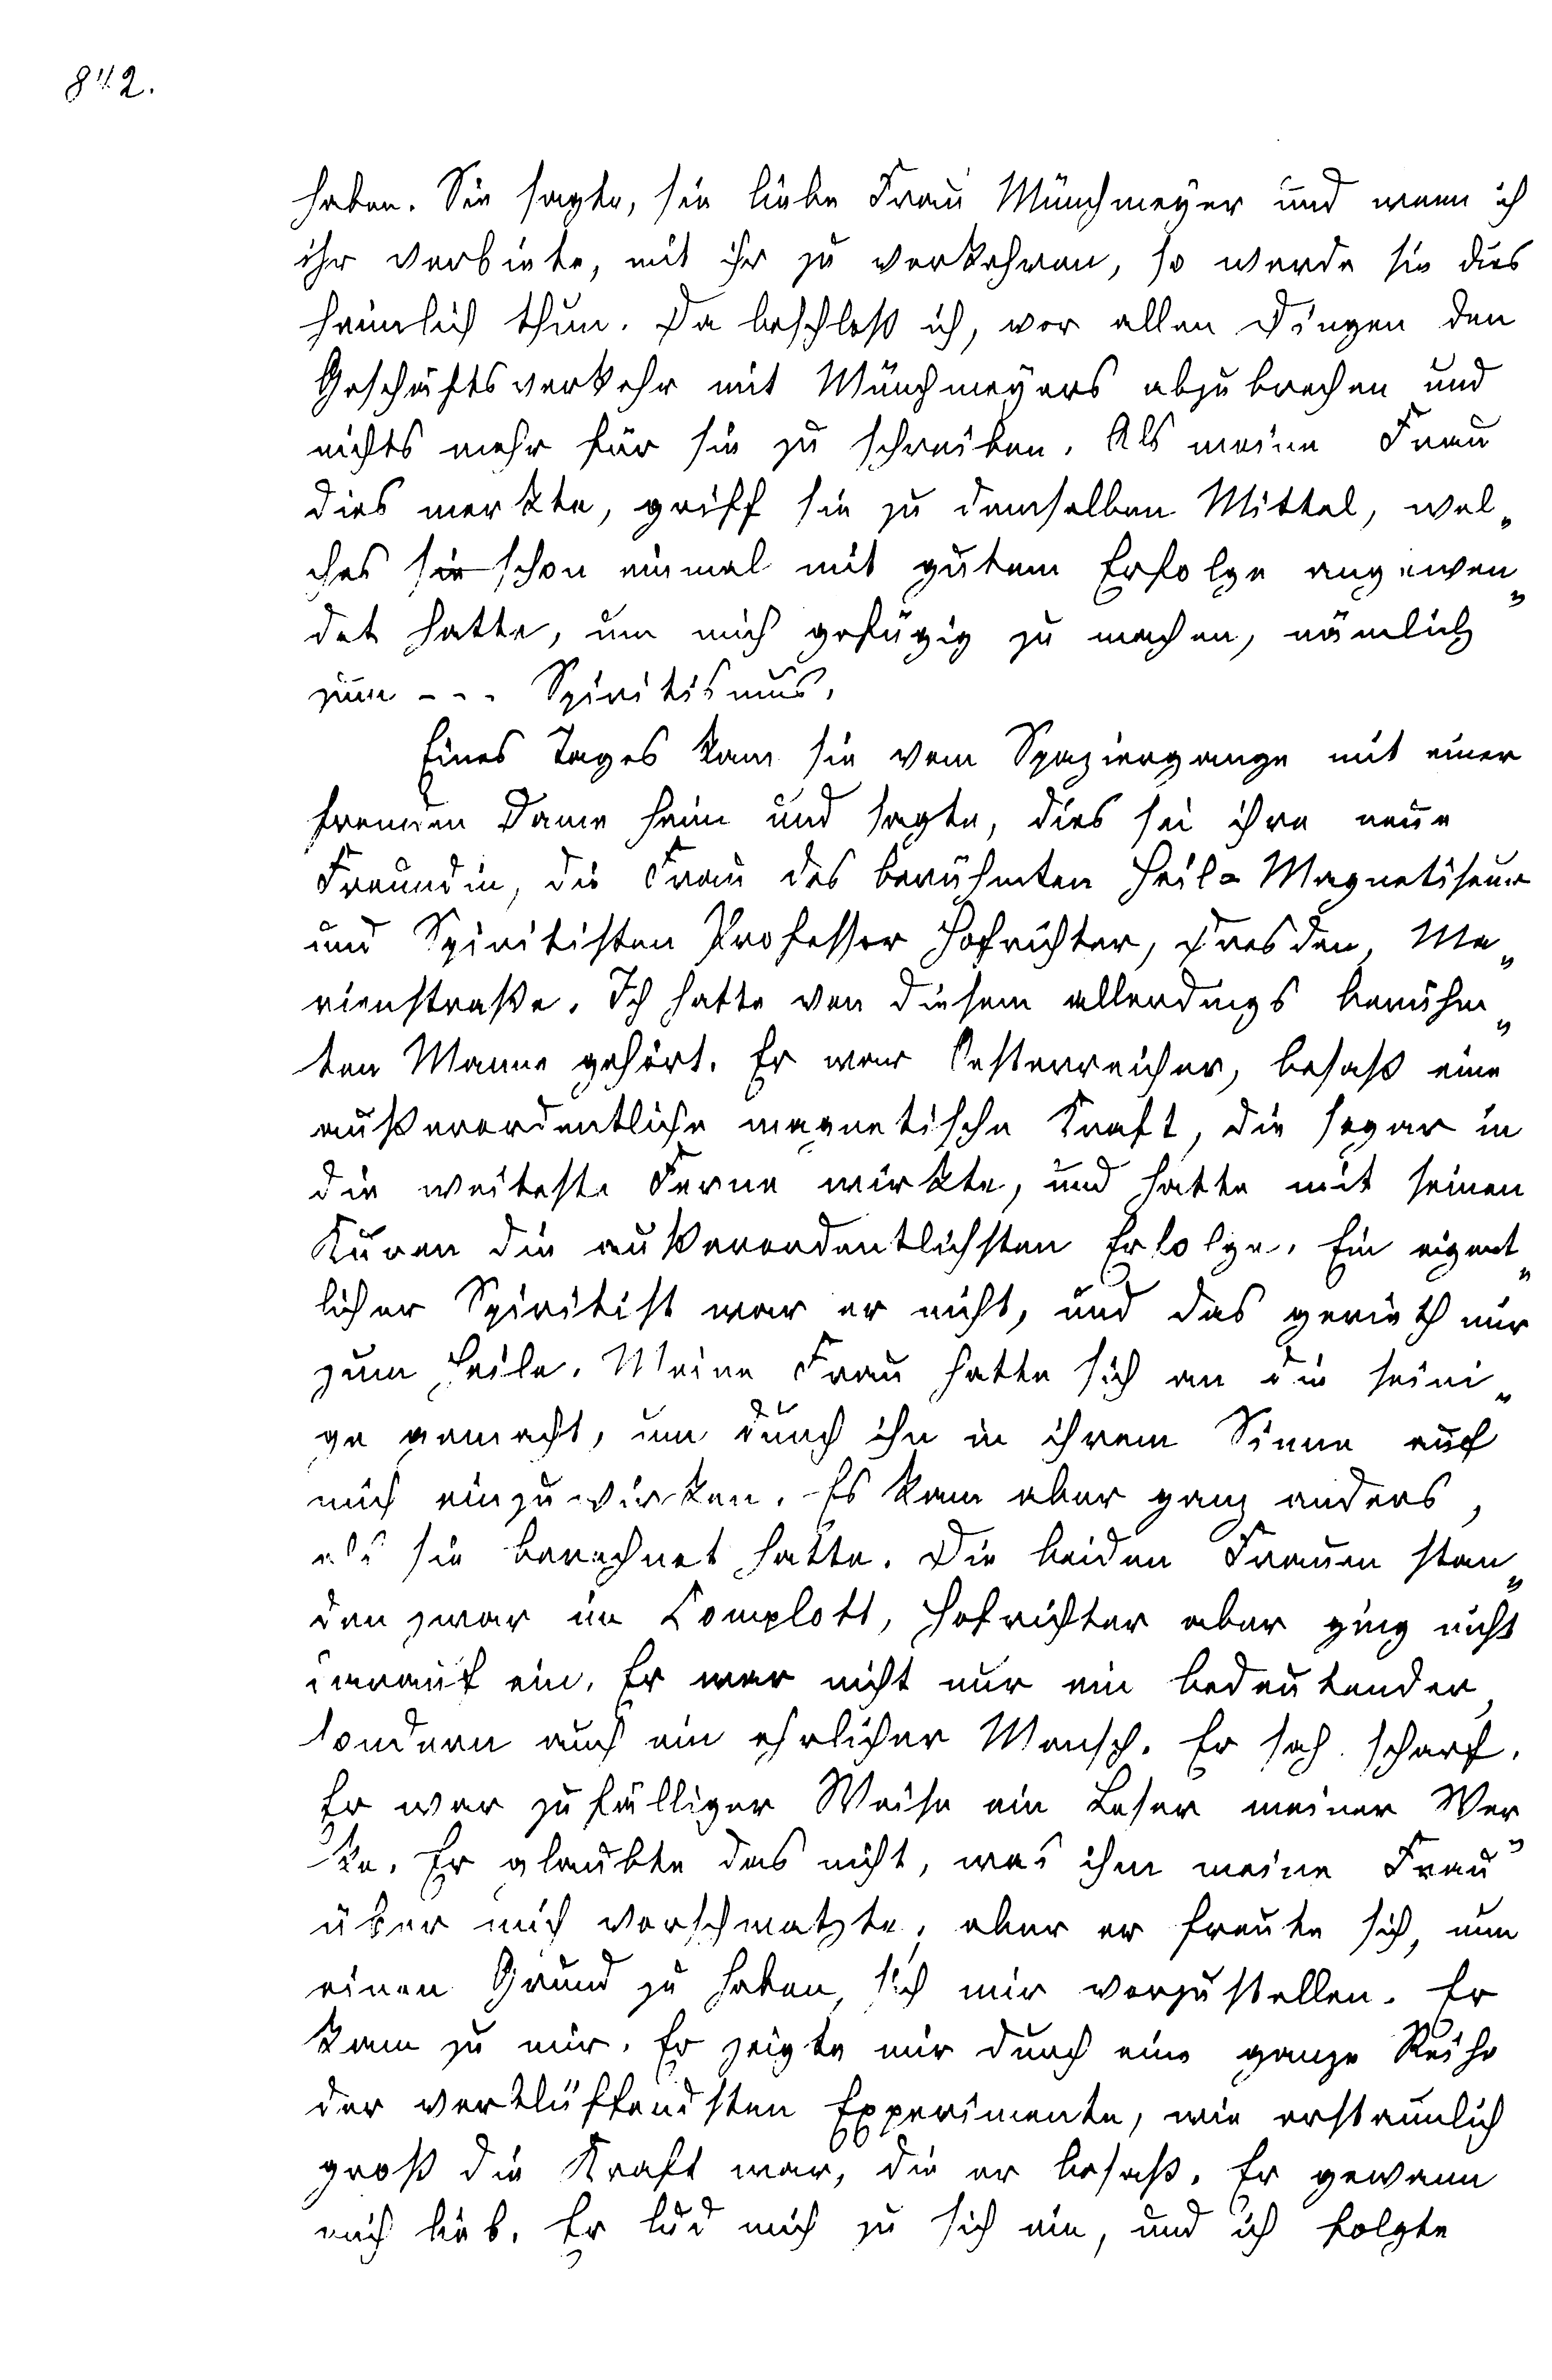 842.
haben. Sie sagte, sie liebe Frau Münchmeyer und wenn ich
ihr verbiete, mit ihr zu verkehren, so werde sie dies
heimlich thun. Da beschloß ich, vor allen Dingen den
Geschäftsverkehr mit Münchmeyers abzubrechen und
nichts mehr für sie zu schreiben. Als meine Frau
dies merkte, griff sie zu demselben Mittel, wel„
ches sie schon einmal mit gutem Erfolge angewen„
det hatte, um mich gefügig zu machen, nämlich
zum - - - Spiritismus.
Eines Tages kam sie vom Spaziergange mit einer
fremden Dame heim und sagte, dies sei ihre neue
Freundin, die Frau des berühmten Heil= Magnetiseur
und Spiritisten Professor Hofrichter, Dresden, Ma„
rienstraße. Ich hatte von diesem allerdings berühm„
ten Manne gehört. Er war Oesterreicher, besaß eine
außerordentliche magnetische Kraft, die sogar in
die weiteste Ferne wirkte, und hatte mit seinen
Kuren die außerordentlichsten Erfolge. Ein eigent„
licher Spiritist war er nicht, und das gerieth mir
zum Heile. Meine Frau hatte sich an die seini„
ge gemacht, um durch ihn in ihrem Sinne auf
mich einzuwirken. Es kam aber ganz anders,
als sie berechnet hatte. Die beiden Frauen stan„
den zwar im Complott, Hofrichter aber ging nicht
darauf ein. Er war nicht nur ein bedeutender,
sondern auch ein ehrlicher Mensch. Er sah scharf.
Er war zufälliger Weise ein Leser meiner Wer„
ke. Er glaubte das nicht, was ihm meine Frau
über mich vorschwatzte, aber er freute sich, nun
einen Grund zu haben, sich mir vorzustellen. Er
kam zu mir. Er zeigte mir durch eine ganze Reihe
der verblüffendsten Experimente, wie erstaunlich
groß die Kraft war, die er besaß. Er gewann
mich lieb. Er lud mich zu sich ein, und ich folgte